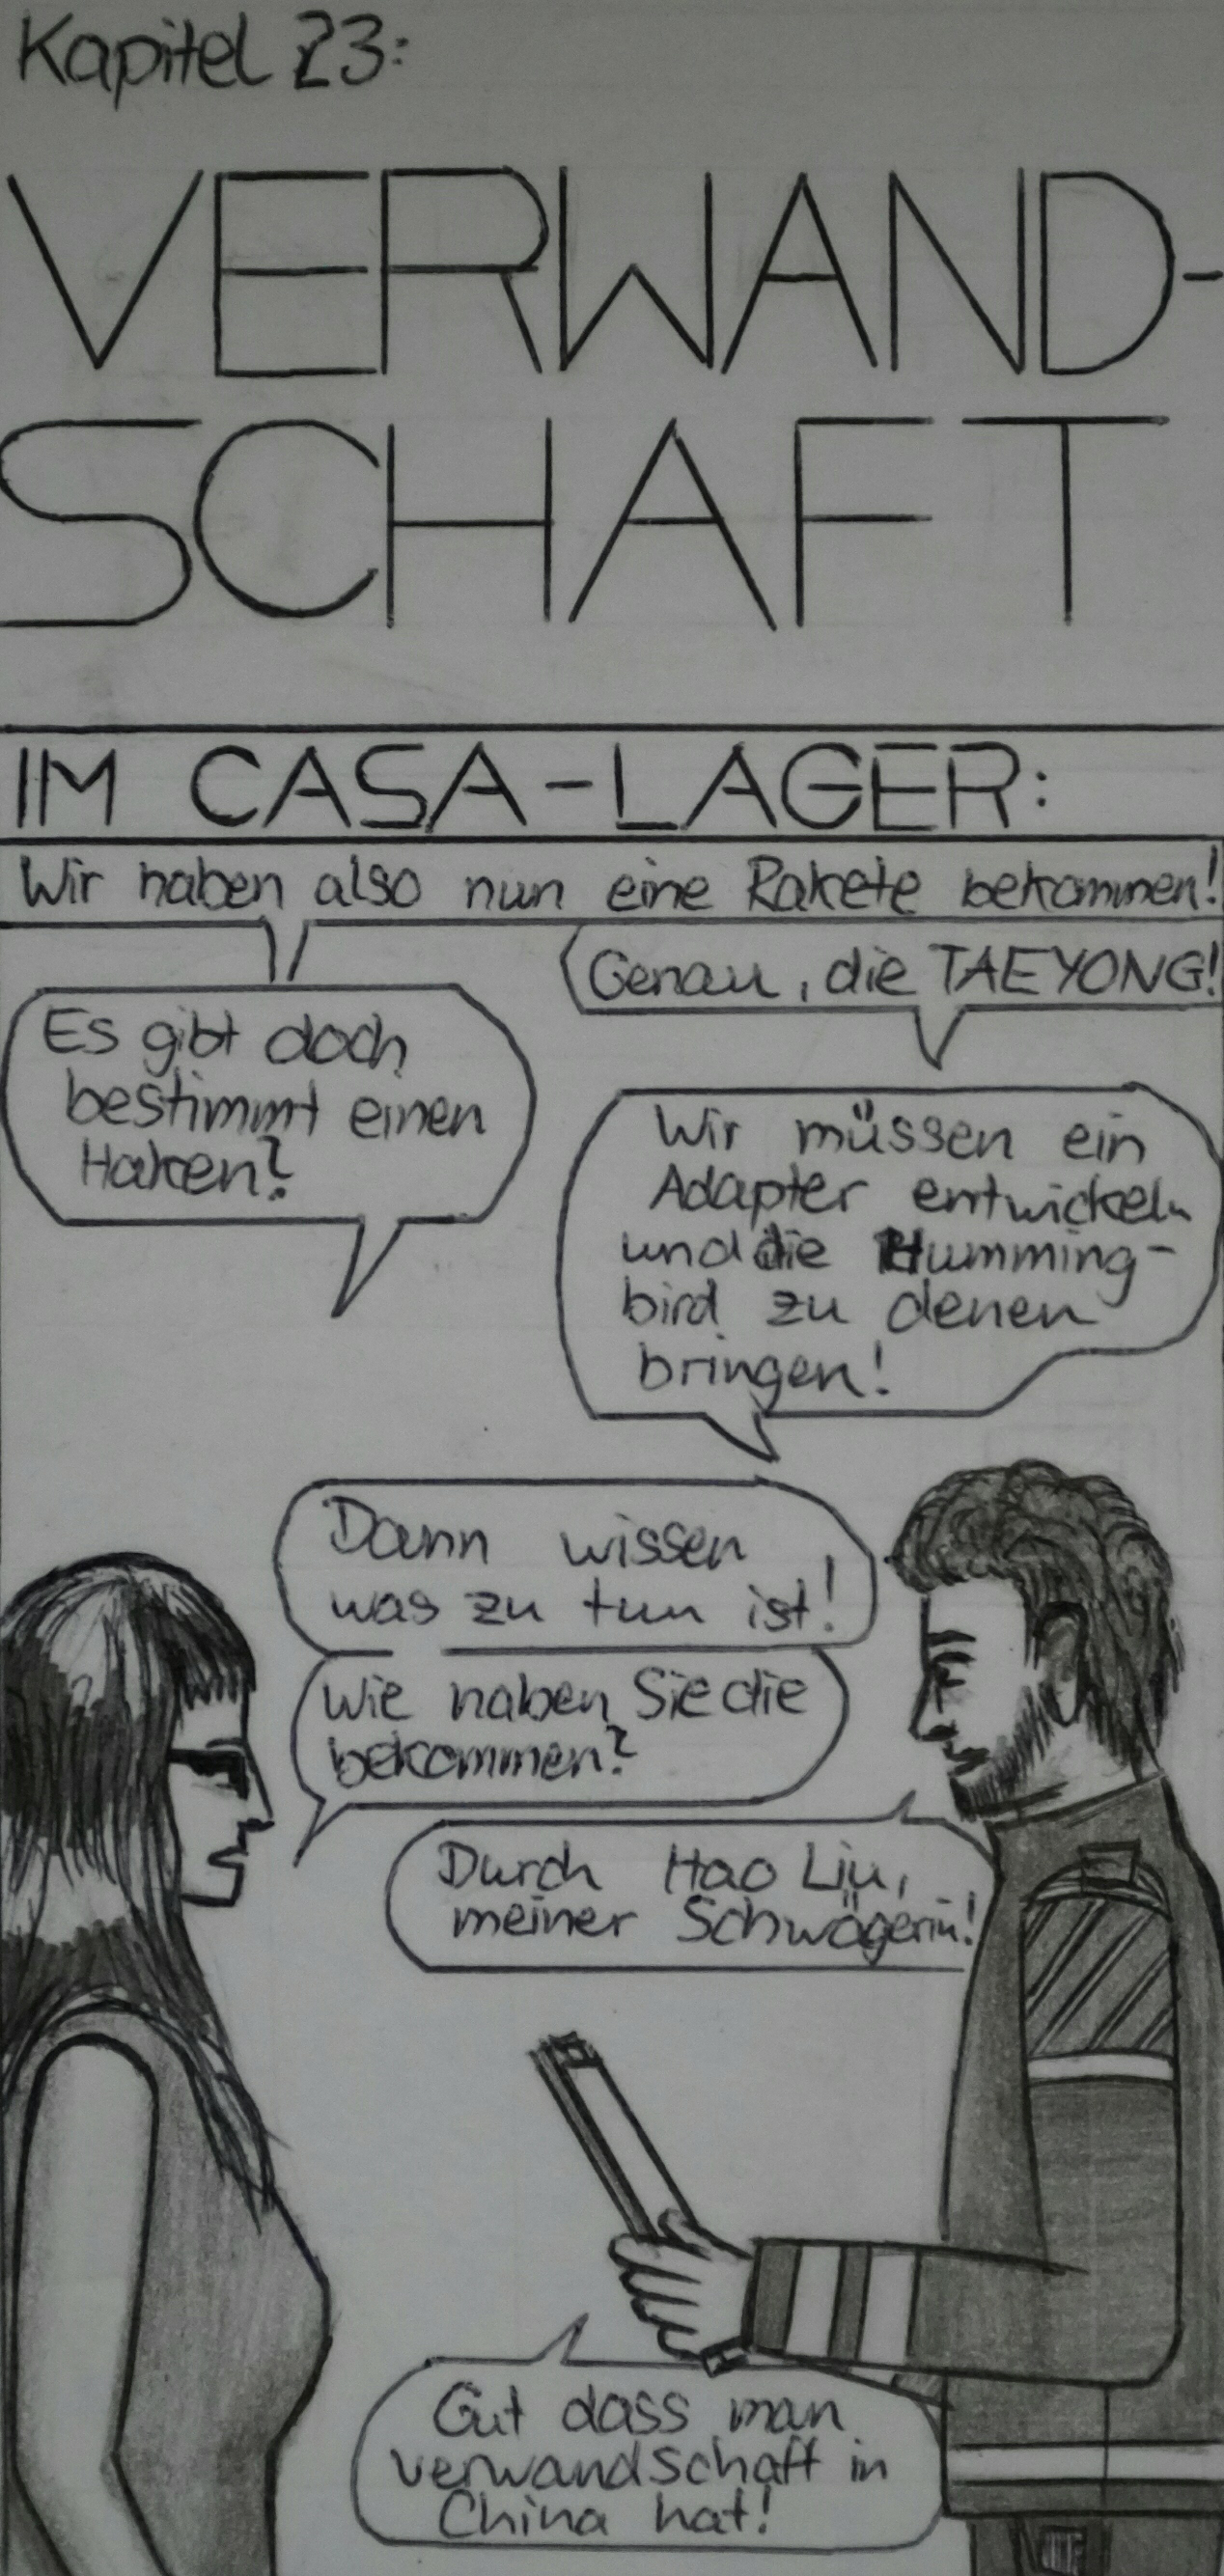 Kapitel 23:
VERWAND-
SCHAFT
IM CASA-LAGER:
Wir haben also nun eine Rakete bekommen!
Genau, die TAEYONG!
Es gibt doch
bestimmt einen
Haken?
Wir müssen ein
Adapter entwickeln
und die Humming-
bird zu denen
bringen!
Dann wissen
was zu tun ist!
Wie haben Sie die
bekommen?
Durch Hao Liu,
meiner Schwägerin!
Gut dass man
verwandschaft in
China hat!